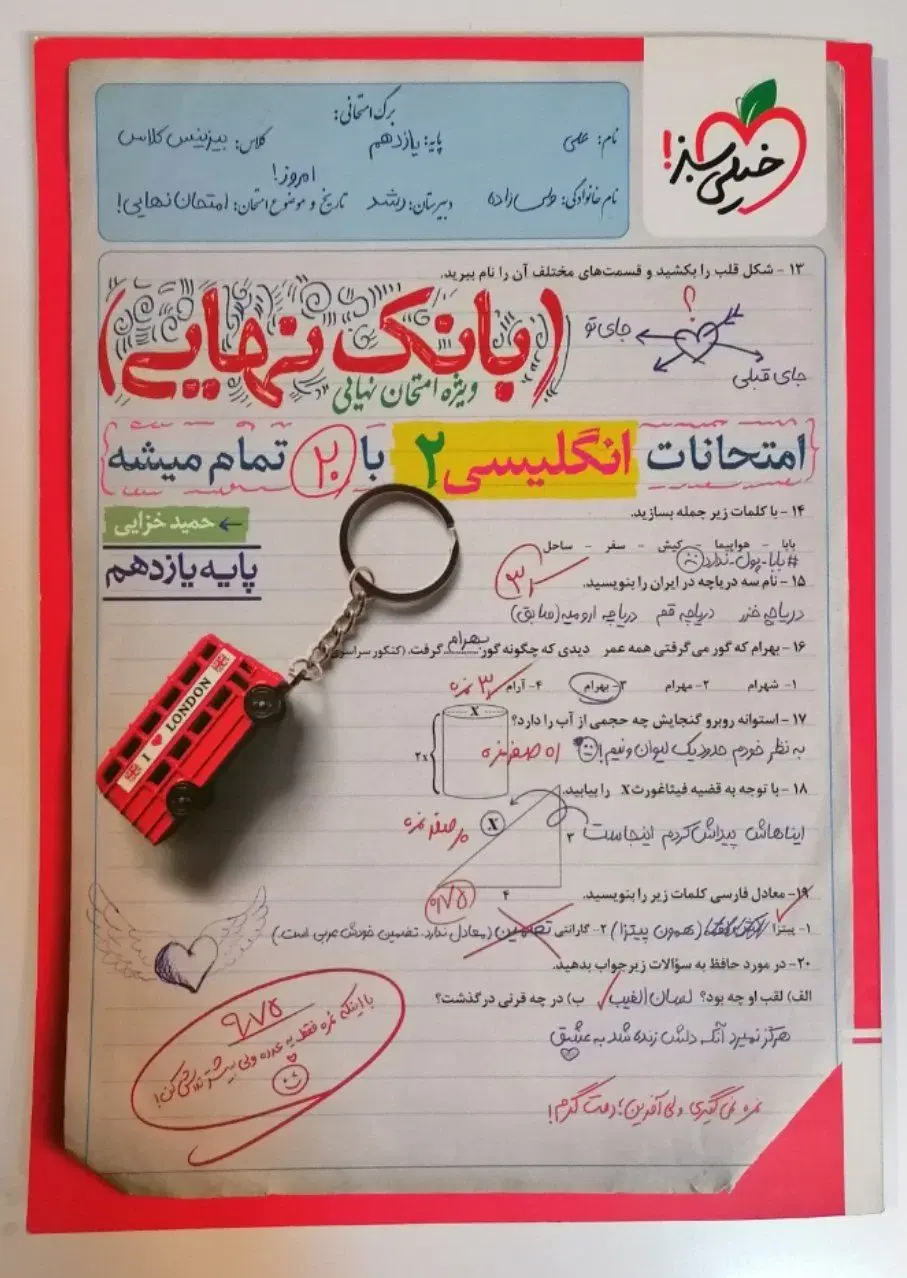 خیلی سبز!
برگ امتحانی:
نام: علی
پایه: یازدهم
کلاس: بیزینس کلاس
نام خانوادگی: ولی زاده
دبیرستان: رشد
تاریخ و موضوع امتحان: امروز! امتحان نهایی!
۱۳ - شکل قلب را بکشید و قسمت‌های مختلف آن را نام ببرید.
؟
جای تو
جای قبلی
(بانک نهایی)
ویژه امتحان نهایی
امتحانات انگلیسی ۲ با ۲۰ تمام میشه
← حمید خزایی
پایه یازدهم
۱۴ - با کلمات زیر جمله بسازید.
بابا - هواپیما - کیش - سفر - ساحل
#بابا-پول-ندارد
۱۵ - نام سه دریاچه در ایران را بنویسید.
دریاچه خزر دریاچه قم دریاچه ارومیه (سابق)
۱۶ - بهرام که گور می‌گرفتی همه عمر دیدی که چگونه گور بهرام گرفت. (کنکور سراسری
۱- شهرام ۲- مهرام ۳- بهرام ۴- آرام
۱۷ - استوانه روبرو گنجایش چه حجمی از آب را دارد؟
X
۲x
به نظر خودم حدود یک لیوان و نیم!
اه صفر نمره
۱۸ - با توجه به قضیه فیثاغورث X را بیابید.
ایناهاش پیداش کردم اینجاست
X
۳
۴
صفر نمره
۰/۷۵
۱۹- معادل فارسی کلمات زیر را بنویسید.
۱- پیتزا (همون پیتزا) ۲- گارانتی تضمین (معادل ندارد. تضمین خودش عربی است.)
۲۰- در مورد حافظ به سؤالات زیر جواب بدهید.
الف) لقب او چه بود؟ لسان الغیب ب) در چه قرنی درگذشت؟
هرگز نمیرد آنکه دلش زنده شد به عشق
نمره نمی‌گیری ولی آفرین؛ دمت گرم!
۹/۷۵
با اینکه نمره فقط یه عدده ولی بیشتر تلاش کن!
I LONDON